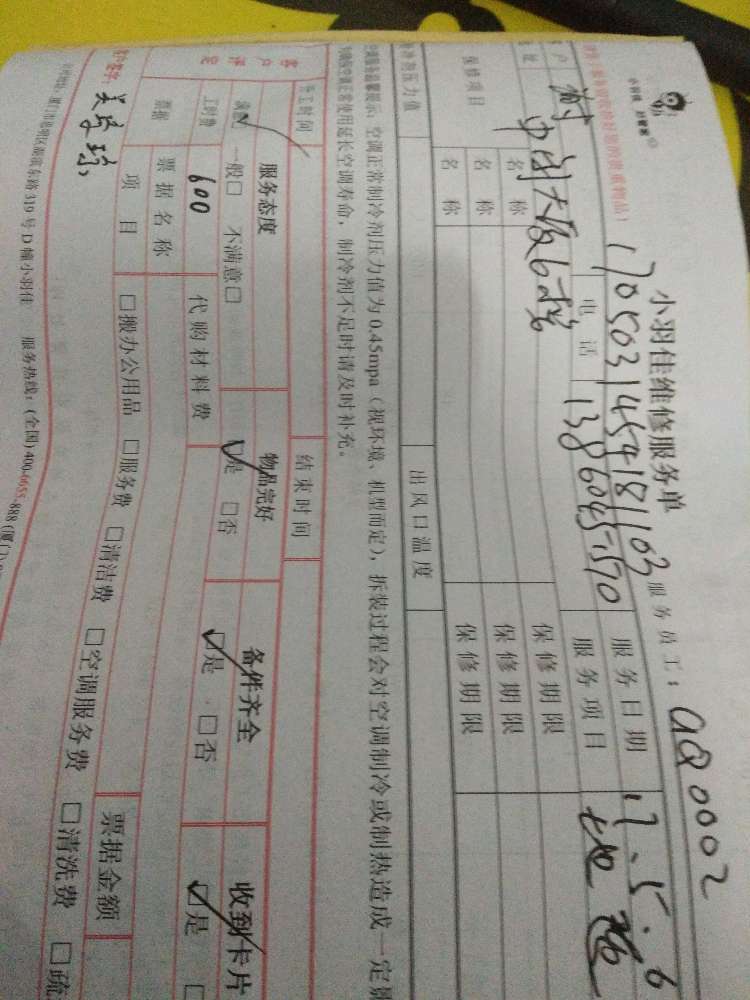 小羽佳 好管家
小羽佳维修服务单
服务员工： a80002
17050314549181103
客户 谢
电话 13860455570
服务日期 17.5.6
中闽大厦6楼
服务项目 地毯
保修项目 名称 保修期限
名称 保修期限
名称 保修期限
出风口温度
空调正常制冷剂压力值为0.45mpa（视环境、机型而定），拆装过程会对空调制冷或制热造成一定
使用延长空调寿命，制冷剂不足时请及时补充。
结束时间
服务态度 物品完好 备件齐全 收到卡片
一般□ 不满意□ ☑是 □否 ☑是 □否 ☑是
工时费 600 代购材料费
票据 票据名称 票据金额
项目 □搬办公用品 □服务费 □清洁费 □空调服务费 □清洗费 □疏
东路319号D幢小羽佳 服务热线：(全国) 400-6655-888